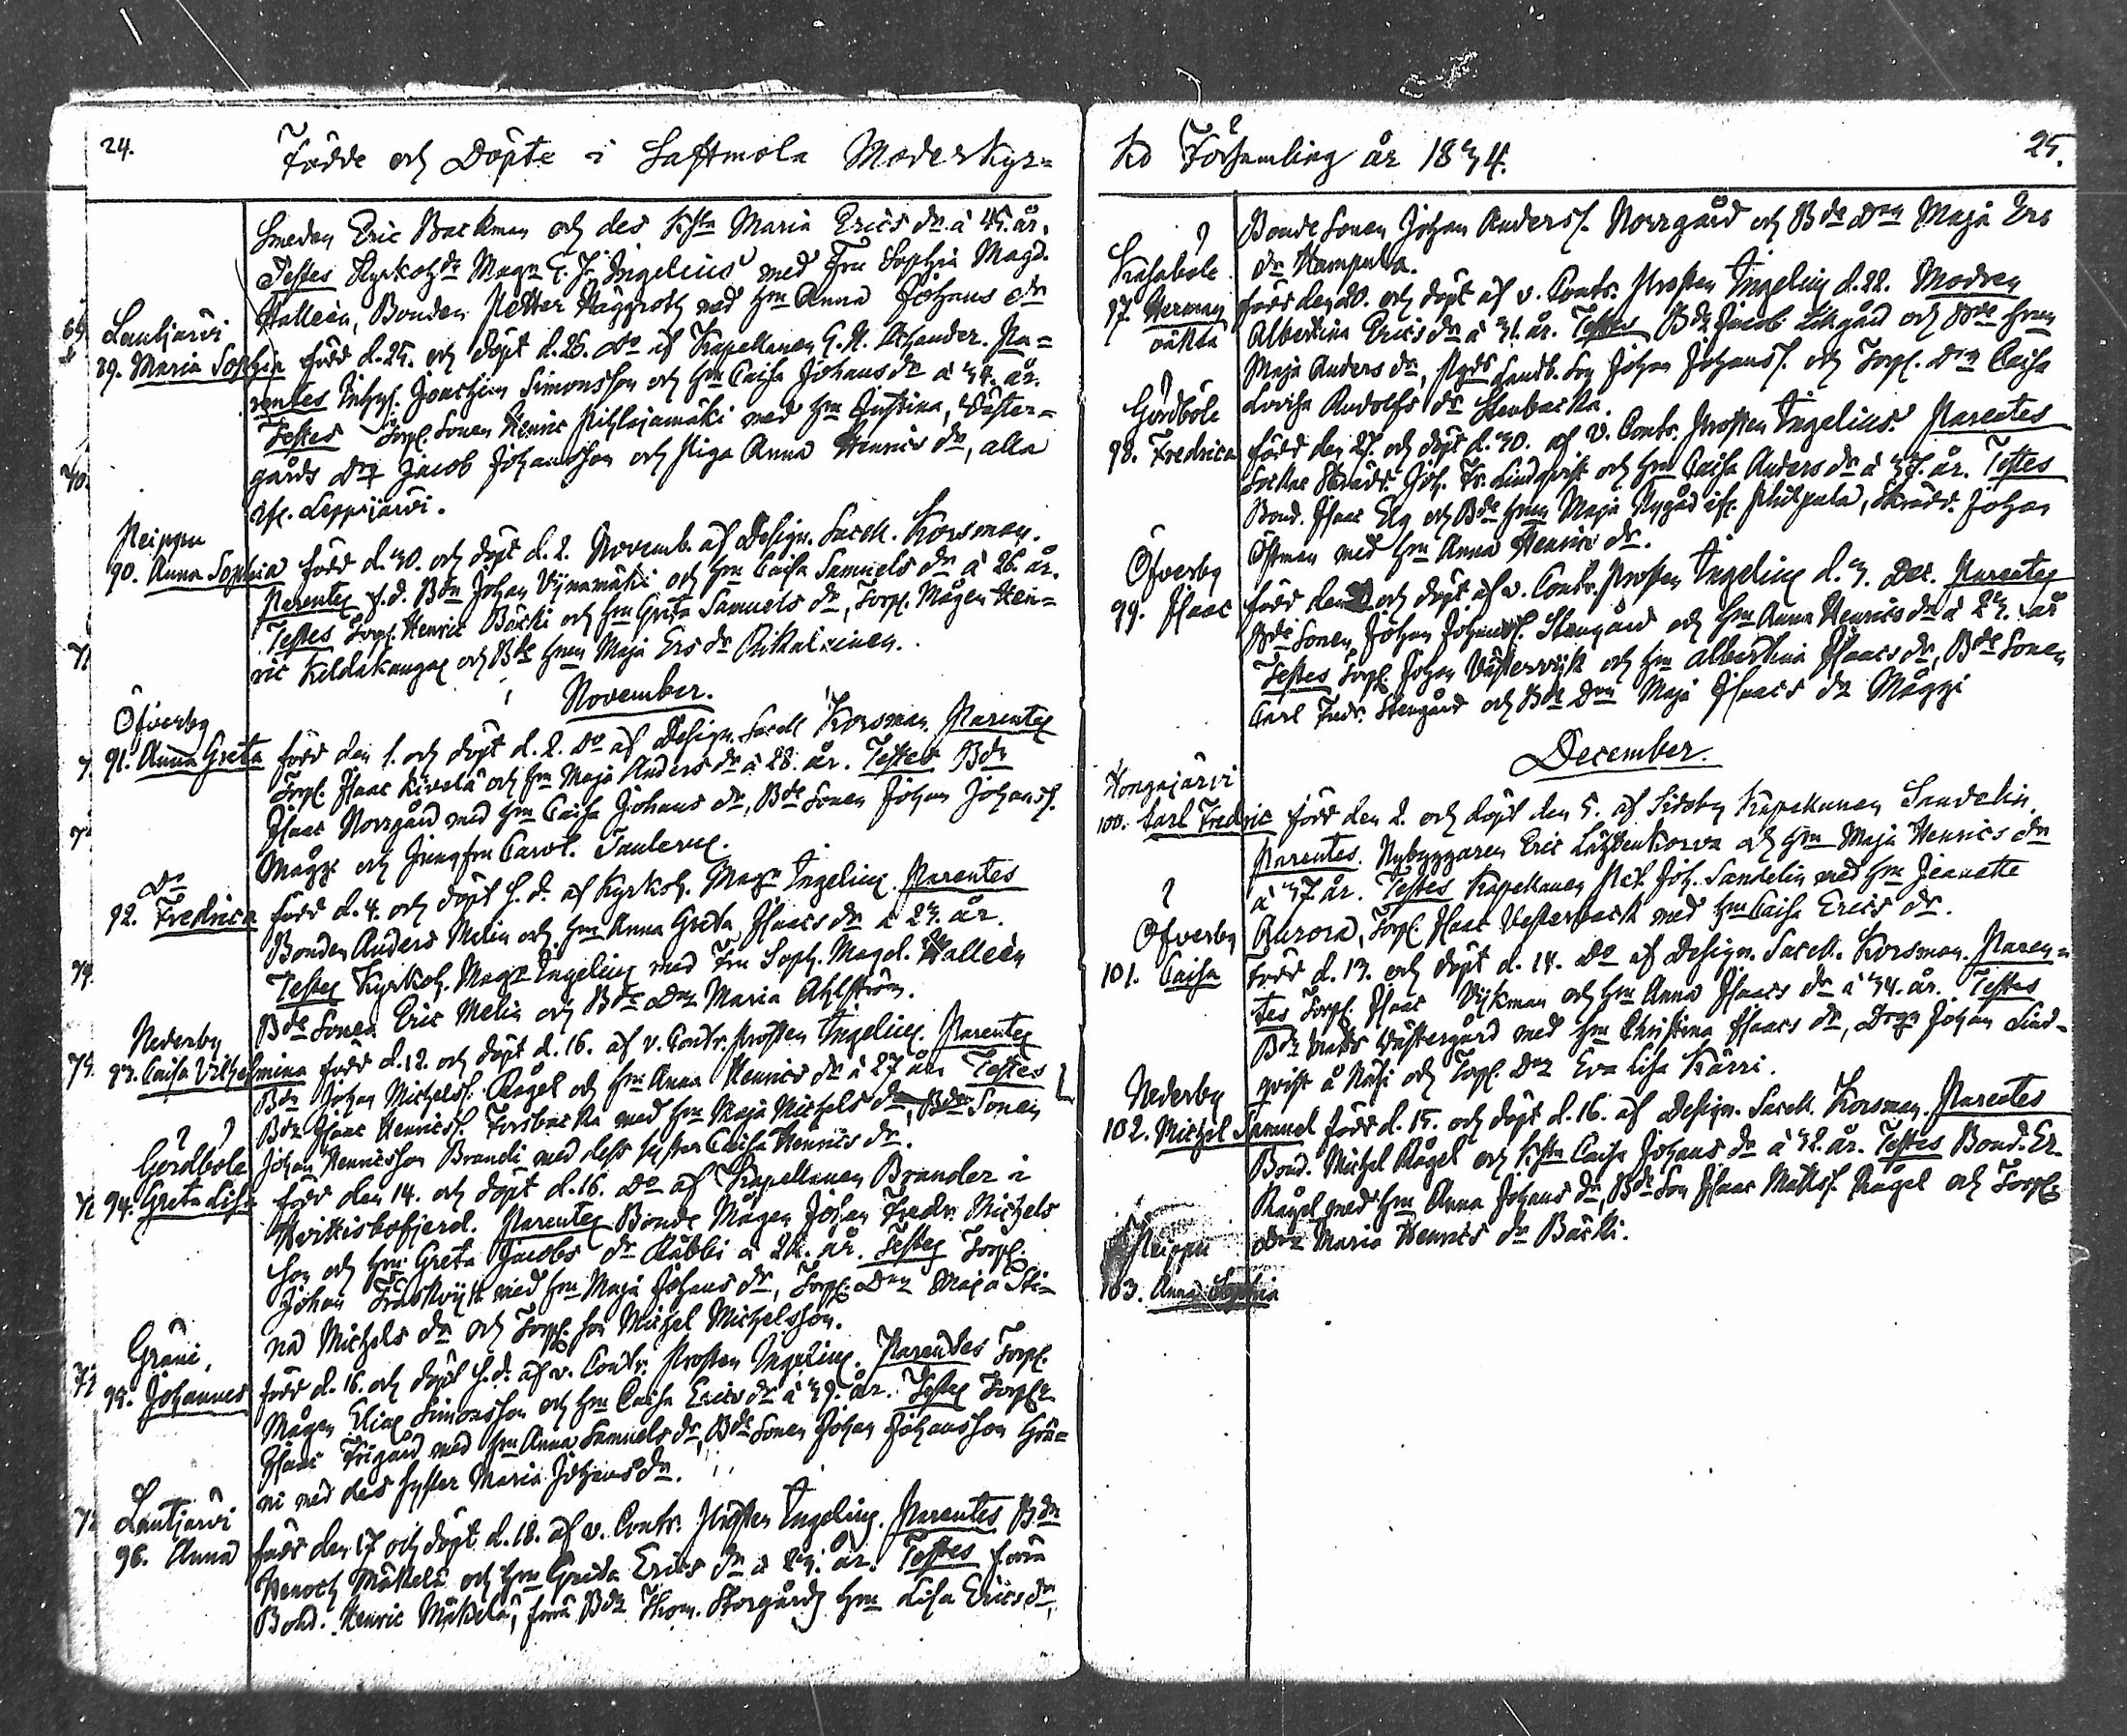 24.
Födde och Döpte i Laftmola Moderkyr=
Smeden Eric Backman och des Hstu Maria Erics dr à 45. år.
Testes Kyrkohdr Magr E. J. Ingelius med Fru Sophia Magd.
Halleén, Bonden Petter Häggroth med hm Anna Johans dr
Lautjärvi
89. Maria Sophia född d. 25. och döpt d. 26. do af Kapellanen G. H. Pa=
rentes Inhys. Joachim Simonsson och hm Caisa Johans dr à 34. år.
Testes Torp. Sonen Henric Pihlajamäki med hm Justina, Väster=
gårds Jacob Johansson och Piga Anna Henrics dr, alla
ifr. Leppijärvi.
Peippu
90. Anna Sophia född d. 30. och döpt d. 2. Novemb. af Design. Sacell. Korsman.
Parentes f.d. Bdn Johan Vijnamäki och hm Caisa Samuels dr à 26. år.
Testes Torp. Henric Bäcki och hm Greta Samuels dr, Torp. Mågen Hen=
ric Keldakangas och Bde hnen Maja Ers dr
November.
Öfverby
91. Anna Greta född den 1. och döpt d. 2. do af Design. Sacell Korsman. Parentes
Torp. Isaac Kivelä och hm Maja Anders dr à 28. år. Testes Bdn
Isaac Norrgård med hm Caisa Johans dr, Bde Sonen Johan Johanss.
Mågg och Jungfru Carol. Taulerus.
Do
92. Fredrica född d. 4. och döpt s.d. af Kyrkoh. Magr Ingelius. Parentes
Bonden Anders Melin och hm Anna Greta Isaacs dr à 23. år.
Testes Kyrkoh. Magr Ingelius med Fru Soph. Magd. Halleén
Bde Sonen Eric Melin och Bde Dr Maria Ahlström.
Nederby
93. Caisa Vilhelmina född d. 12. och döpt d. 16. af v. Contr. Prosten Ingelius. Parentes
Bdn Johan Michelss. Rågel och hm Anna Henrics dr à 27 år. Testes
Bdn Isaac Henricss. Forsbacka med hm Maja Michels dr, Bde Sonen
Johan Henricsson Brandi med dess syster Caisa Henrics dr.
Gördbole
94. Greta Lisa född den 14. och döpt d. 16. do af Kapellanen Brander i
Hvittisbofjerd. Parentes Bonde Mågen Johan Fredr. Michels
son och hm Greta Jacobs dr Räbbi à 22. år. Testes Torp.
Johan Träskvijk med hm Maja Johans dr, Torp. Dr Maja Sti=
na Michels dr och Torp. son Michel Michelsson.
Gräni,
95. Johannes född d. 16. och döpt s.d. af v. Contr. Prosten Ingelius. Parentes Torp.
Mågen Elias Simonsson och hm Caisa Erics dr à 39. år. Testes Torp.
Isaac Frigård med hm Anna Samuels dr, Bde Sonen Johan Johansson Grä=
ni med des syster Maria Johans dr.
Lautjärvi
96. Anna född den 17 och döpt d. 18. af v. Contr. Prosten Ingelius. Parentes Bdn
Henoch Mäkelä och hm Greta Erics dr à 23. år. Testes forra
Bond. Henric Mäkelä, forra Bdn Thom. Storgårds hm Lisa Erics dr,
25.
ko Församling år 1834.
Bonde Sonen Johan Anderss. Norrgård och Bde Dr Maja Ers
dr Kampula.
Kasabole
97. Herman oäkta född den 20. och döpt af v. Contr. Prosten Ingelius d. 22. Modren
Albertina Erics dr à 31. år. Testes Bdn Jacob Lillgård och Bde hnen
Maja Anders dr, Son Johan Johanss. och Torp. Dr Caisa
Lovisa Rudolfs dr Stenbacka.
Gördbole
98. Fredrica född den 27. och döpt d. 30. af v. Contr. Prosten Ingelius. Parentes
Socken Skrädr. Joh. Fr. Lindqvist och hm Caisa Anders dr à 37. år. Testes
Bond. Isaac Elg och Bde hnen Maja Nygård ifr. Philpula, Skrädr. Johan
Östman med hm Anna Henrics dr.
Öfverby
99. Isaac född den och döpt af v. Contr. Prosten Ingelius d. 3. Dec. Parentes
Bde Sonen Johan Johanss. Stengård och hm Anna Henrics dr à 23. år
Testes Torp. Johan Västervijk och hm Albertina Isaacs dr, Bde Sonen
Carl Fredr. Stengård och Bde Dr Maja Isaacs dr Mäggi
December.
Hongajärvi
100. Carl Fredric född den 2. och döpt den 5. af Sideby Kapellanen Sandelin.
Parentes. Nybyggaren Eric Lähtenkorva och hm Maja Henrics dr
à 37 år. Testes Kapellanen Pet. Joh. Sandelin med hm Jeanette
Aurora, Torp. Isaac Vesterback med hm Caisa Erics dr.
Öfverby
101. Caisa född d. 13. och döpt d. 14. do af Design. Sacell. Korsman. Paren=
tes Torp. Isaac Vijkman och hm Anna Isaacs dr à 34. år. Testes
Bdn Matts Västergård med hm Christina Isaacs dr, Johan Lind=
qvist å Näsi och Torp. Dr Eva Lisa Kärri.
Nederby
102. Michel Samuel född d. 15. och döpt d. 16. af Design. Sacell. Korsman. Parentes
Bond. Michel Rågel och Hstu Caisa Johans dr à 32. år. Testes Bond. Er.
Rågel med hm Anna Johans dr, Bde Son Isaac Mattss. Rågel och Torp.
Dr Maria Henrics dr Bäcki.
Peippu
103. Anna Sophia